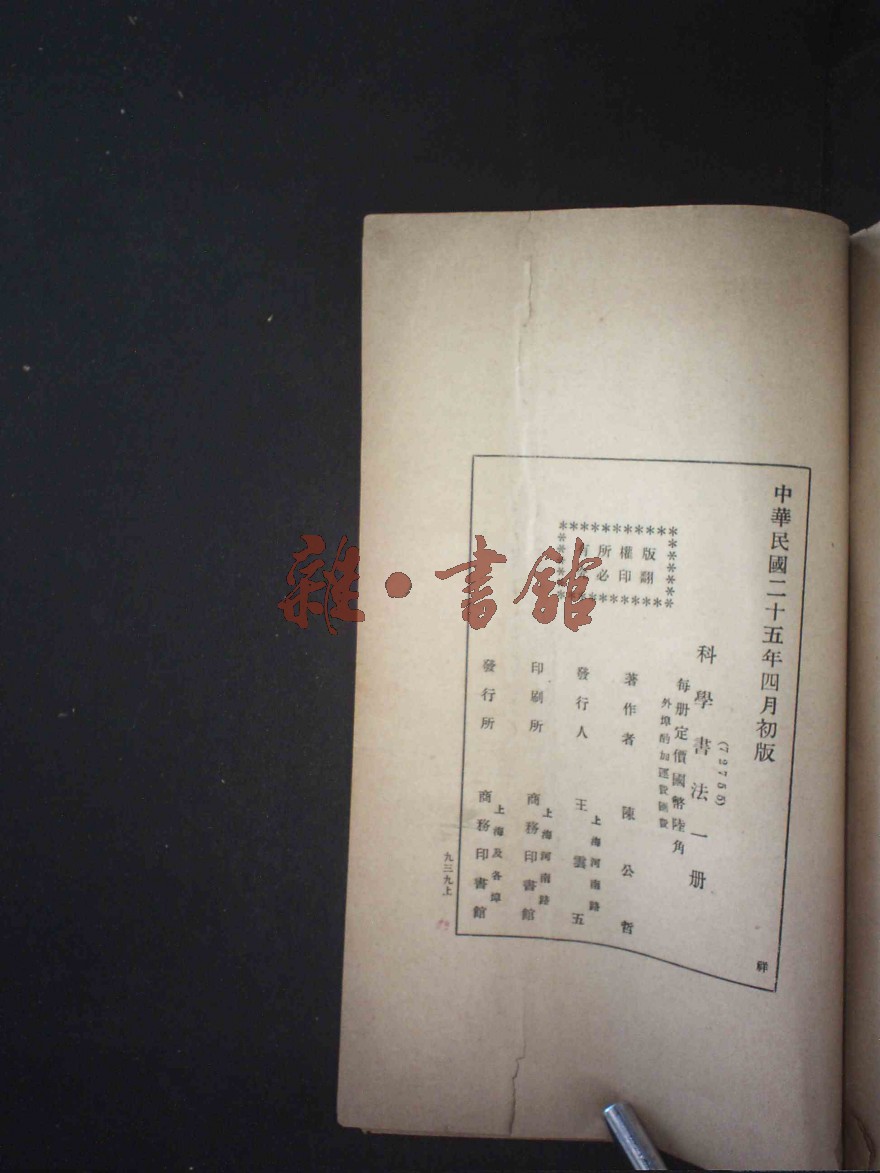 中華民國二十五年四月初版
祥
(72755)
科學書法一册
每册定價國幣陸角
外埠酌加運費匯費
版權所
翻印必
著作者 陳公哲
上海河南路
發行人 王雲五
上海河南路
印刷所 商務印書館
上海及各埠
發行所 商務印書館
九三九上
雜·書館